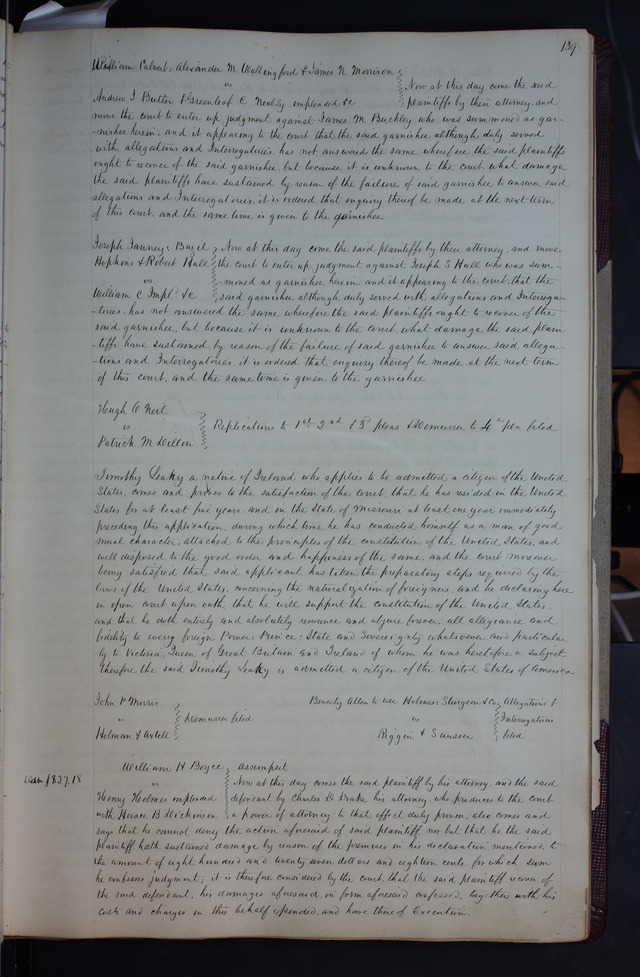 139
William Calvert, Alexander M. Wallingford & James N. Morrison
vs
Now at this day come the said
Andrew J Butler & Greenleaf C Neally impleaded &c
plaintiffs by their attorney and
move the court to enter up judgment against James M Buckley who was summoned as gar-
-nishee herein, and it appearing to the court that the said garnishee although duly served
with allegations and Interrogatories has not answered the same wherefore the said plaintiffs
ought to recover of the said garnishee, but because it is unknown to the court, what damage
the said plaintiffs have sustained by reason of the failure of said garnishee to answer said
allegations and Interrogatories, it is ordered that enquiry thereof be made at the next term
of this court, and the same time is given to the garnishee
Joseph Tanney, Bazil
Now at this day come the said plaintiffs by their attorney, and move
Hopkins & Robert Hull
the court to enter up judgment against Joseph S Hull who was sum-
vs
-moned as garnishee herein, and it appearing to the court, that the
William C Impl &c
said garnishee although duly served with allegations and Interroga-
-tories, has not answered the same, wherefore the said plaintiffs ought to recover of the
said garnishee, but because it is unknown to the court, what damage the said plain-
-tiffs have sustained, by reason of the failure of said garnishee to answer said allega-
-tions and Interrogatories, it is ordered that enquiry thereof be made at the next term
of this court, and the same time is given to the garnishee
Hugh O Neil
vs
Replications to 1st 2nd & 3d pleas & Demurrer to 4th plea filed
Patrick M Dillon
Timothy Leahy a native of Ireland who applies to be admitted a citizen of the United
States, comes and proves to the satisfaction of the court, that he has resided in the United
States for at least five years, and in the State of Missouri at least one year immediately
preceding this application, during which time he has conducted himself as a man of good
moral character, attached to the principles of the constitution of the United States, and
well disposed to the good order and happiness of the same, and the court moreover
being satisfied that said applicant has taken the preparatory steps required by the
laws of the United States, concerning the naturalization of foreigners, and he declaring here
in open court upon oath, that he will support the constitution of the United States.
and that he doth entirely and absolutely renounce and abjure forever all allegiance and
fidelity to every foreign Power, Prince, State and Sovereignty whatsoever and particular-
-ly to Victoria, Queen of Great Britain and Ireland of whom he was heretofore a subject
therefore the said Timothy Leahy is admitted a citizen of the United States of America
John P Morris
vs
Demurrer filed
Holman & Axtell
Beverly Allen to use Holmes, Sturgeon & Co
vs
Riggin &
Allegations &
Interrogatories
filed
William H Boyce
Assumpsit
vs
Now at this day comes the said plaintiff by his attorney, and the said
Dam $827.18
Henry Holmes impleaded
defendant by Charles D Drake his attorney, who produces to the court
with Horace B Dickinson
a power of attorney to that effect duly proven, also comes and
says that he cannot deny the action aforesaid of said plaintiff nor but that he the said
plaintiff hath sustained damage by reason of the premises in his declaration mentioned to
the amount of eight hundred and twenty seven dollars and eighteen cents, for which sum
he confesses judgment, it is therefore considered by the court, that the said plaintiff recover of
the said defendant, his damages aforesaid, in form aforesaid confessed, together with his
costs and charges in this behalf expended, and have thereof Execution.